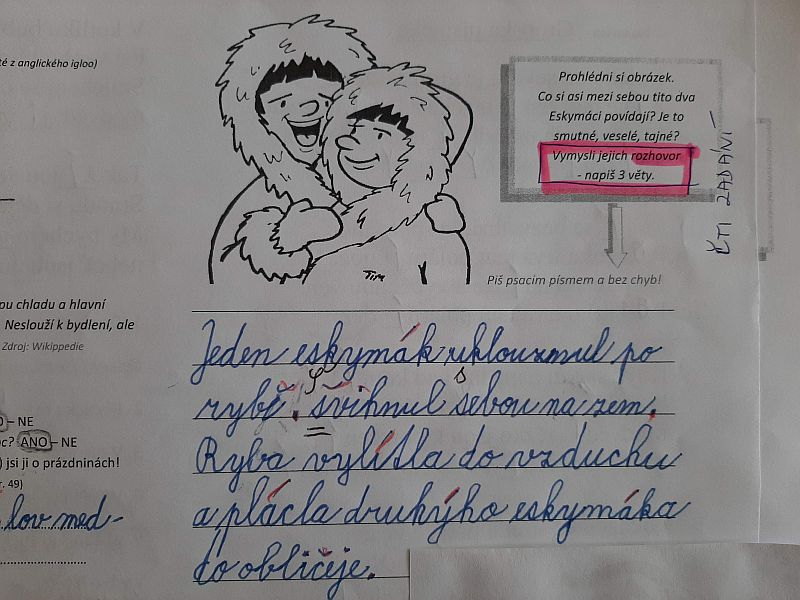 té z anglického igloo)
Prohlédni si obrázek.
Co si asi mezi sebou tito dva
Eskymáci povídají? Je to
smutné, veselé, tajné?
Vymysli jejich rozhovor
- napiš 3 věty.
ČTI ZADÁNÍ
Tim
Piš psacím písmem a bez chyb!
pu chladu a hlavní
Neslouží k bydlení, ale
Zdroj: Wikippedie
– NE
c? ANO – NE
) jsi ji o prázdninách!
r. 49)
lov med-
Jeden eskymák uklouznul po
rybě. švihnul sebou na zem.
s
Ryba vylítla do vzduchu
a plácla druhýho eskymáka
do obličeje.